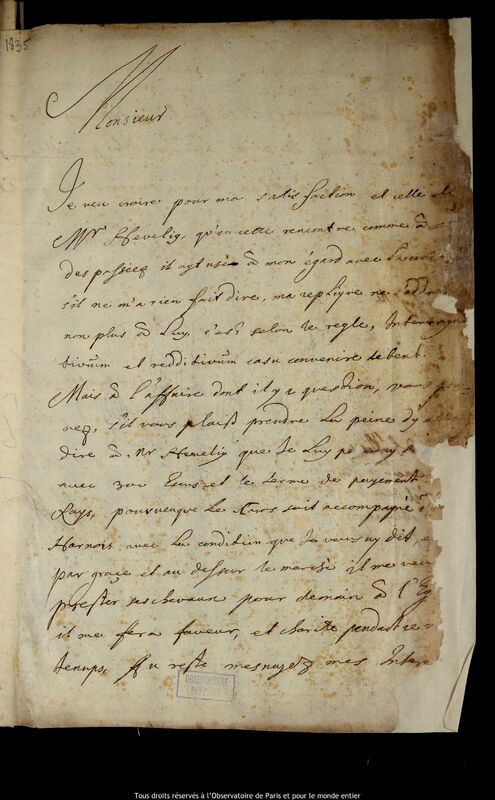 1835
Monsieur
Je veu croire pour ma satisfaction et celle de
Mr Hevelig, qu'en cette rencontre comme à
des passéez il ayt usé à mon égard avec
s'il ne m'a rien fait dire, ma replique ne
non plus à Luy, c'est selon le regle, Interroga
tivum et redditivum casu convenire debent.
Mais à l'affaire dont il y a question, vous
rez, s'il vous plaist prendre la peine d'y
dire à Mr Hevelig que Je Luy
avec 300 Escus et le terme de payement
Pays, pourveuque le Caros soit accompagné
Harnois avec la condition que Je vous ay dit,
par grace et au dessus le marché il me veu
prester ses chevaux pour demain à l'
il me fera faveur, et charité pendant
temps, Au reste mesnagez mes Inter
OBSERVATOIRE
DE PARIS
Tous droits réservés à l'Observatoire de Paris et pour le monde entier